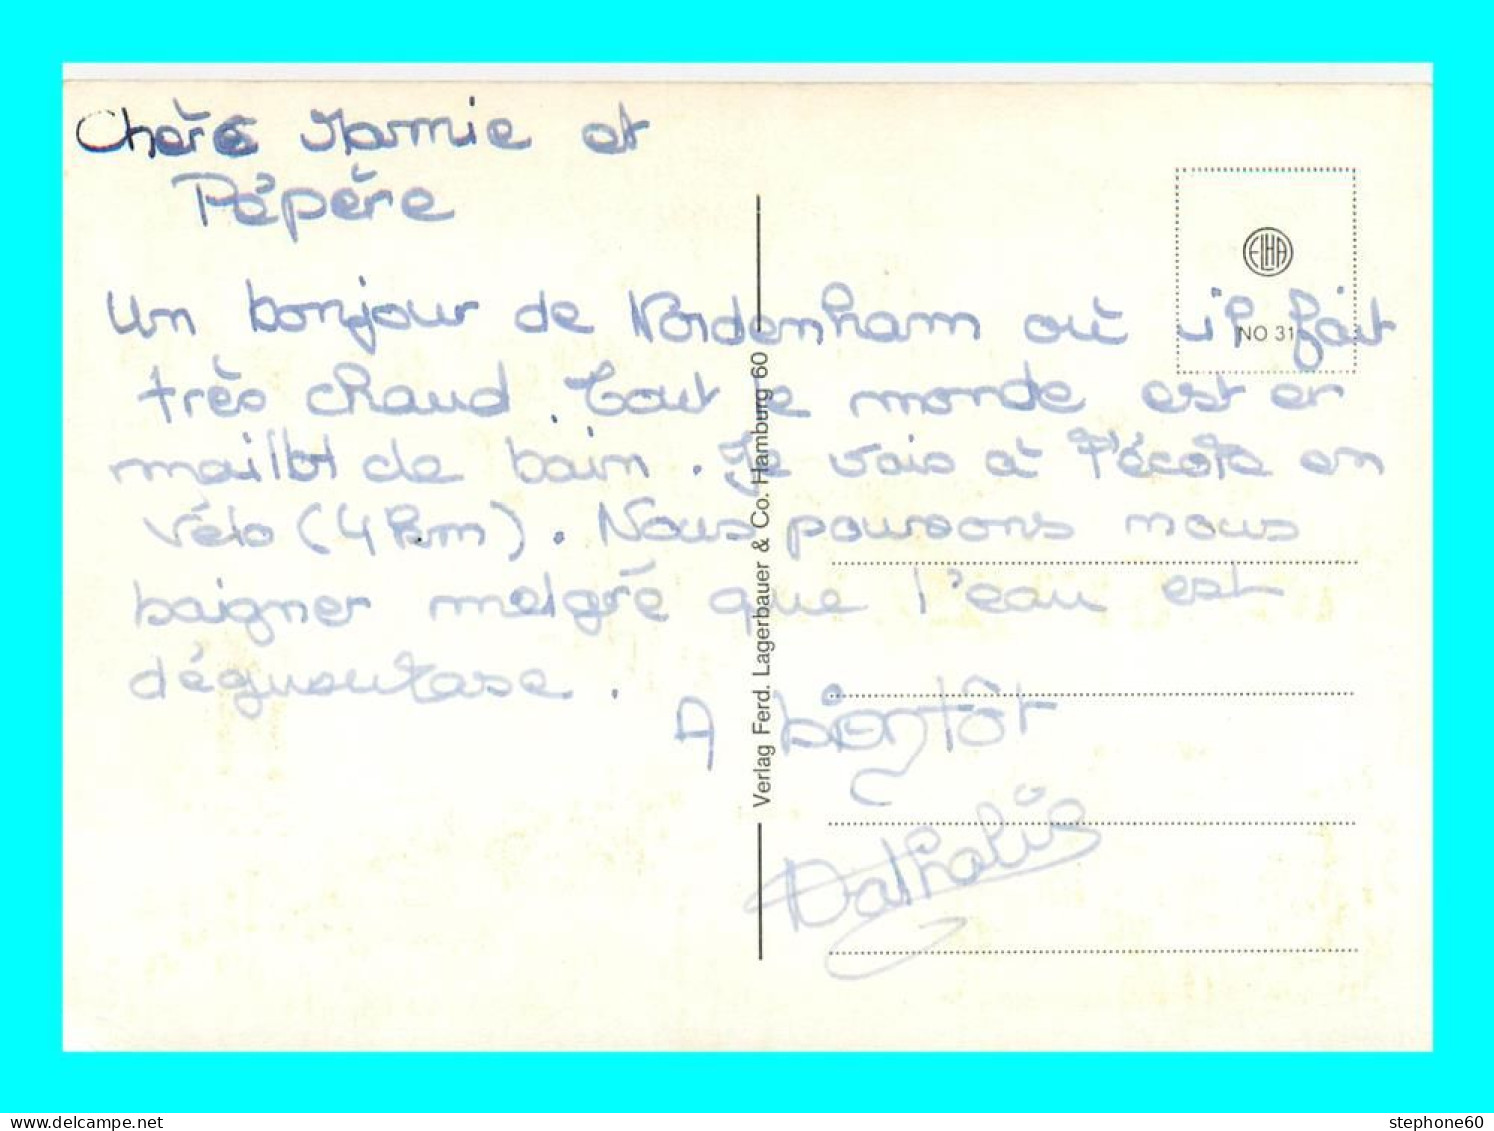 Chère Mamie et
Pépère
Un bonjour de Nordenham où il fait
très chaud. Tout le monde est en
maillot de bain. Je vais à l'école en
vélo (4 km). Nous pouvons nous
baigner malgré que l'eau est
dégueulase.
A bientôt
Nathalie
ELHA
NO 31
Verlag Ferd. Lagerbauer & Co. Hamburg 60
www.delcampe.net
stephone60